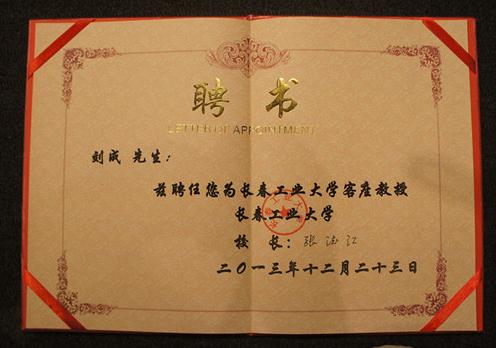 聘 书
LETTER OF APPOINTMENT
刘成 先生：
兹聘任您为长春工业大学客座教授
长春工业大学
校 长：张德江
二〇一三年十二月二十三日